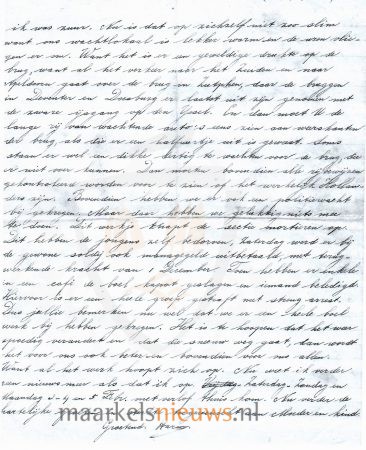 ik was zuur. Nu is dat op zichzelf niet zoo slim
want ons wachtlokaal is lekker warm en de uren vlie-
gen er om. Want het is er een geweldige drukte op de
brug, want al het verkeer naar het Zuiden en naar
Apeldoorn gaat over de brug in Zutphen, daar de bruggen
in Deventer en Doesburg er laatst uit zijn genomen met
de zware ijsgang op den IJssel. En dan moet je de
lange rij van wachtende auto's eens zien aan weerskanten
der brug, als die er een half uurtje uit is geweest. Soms
staan er wel een dikke dertig te wachten voor de brug, die
er niet over kunnen. Dan moeten bovendien alle rijbewijzen
gekontroleerd worden voor te zien of het werkelijk Hollan-
ders zijn. Bovendien hebben we er ook een politiewacht
bij gekregen. Maar daar hebben we gelukkig niets mee
te doen. Dit werkje knapt de sectie mortieren op.
Dit hebben de jongens zelf bedorven, Zaterdag werd er bij
de gewone soldij ook uitbetaald, met terug-
werkende kracht van 1 December. Toen hebben er enkele
in een café de boel kapot geslagen en iemand beledigd.
Hiervoor is er een heele groep gestraft met streng arrest.
Dus jullie bemerken nu wel dat we er een heele boel
werk bij hebben gekregen. Het is te hoopen dat het weer
spoedig verandert en dat die sneeuw weg gaat, dan wordt
het voor ons ook beter en bovendien voor ons allen.
Want al het werk hoopt zich op. Nu weet ik verder
geen nieuws meer als dat ik op Zaterdag, Zondag en
Maandag 3-4 en 5 Febr. met verlof thuis kom. Nu verder de
hartelijke groeten Moeder en kind.
maarkelsnieuws.nl